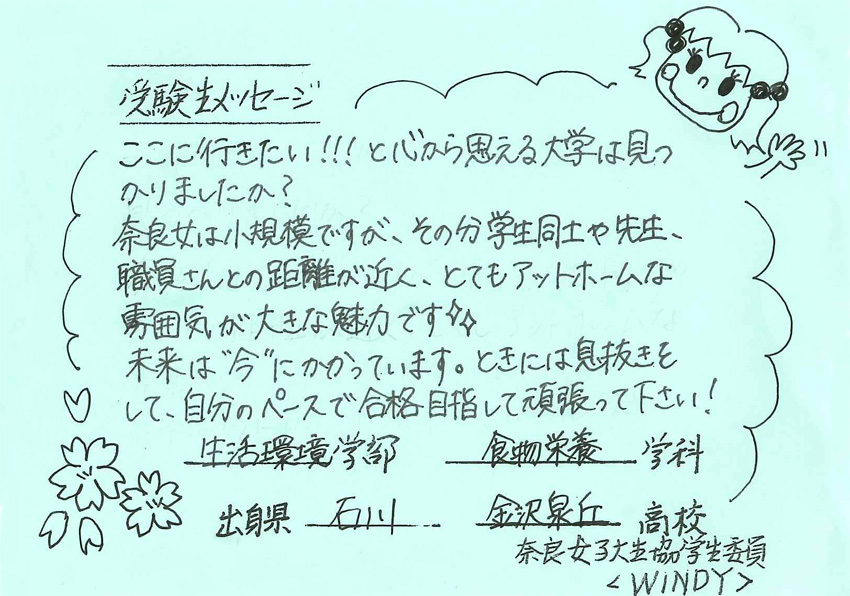 受験生メッセージ
ここに行きたい!!!と心から思える大学は見つ
かりましたか?
奈良女は小規模ですが、その分学生同士や先生、
職員さんとの距離が近く、とてもアットホームな
雰囲気が大きな魅力です
未来は"今"にかかっています。ときには息抜きを
して、自分のペースで合格目指して頑張って下さい!
生活環境学部 食物栄養学科
出身県 石川 金沢泉丘高校
奈良女子大生協学生委員
<WINDY>